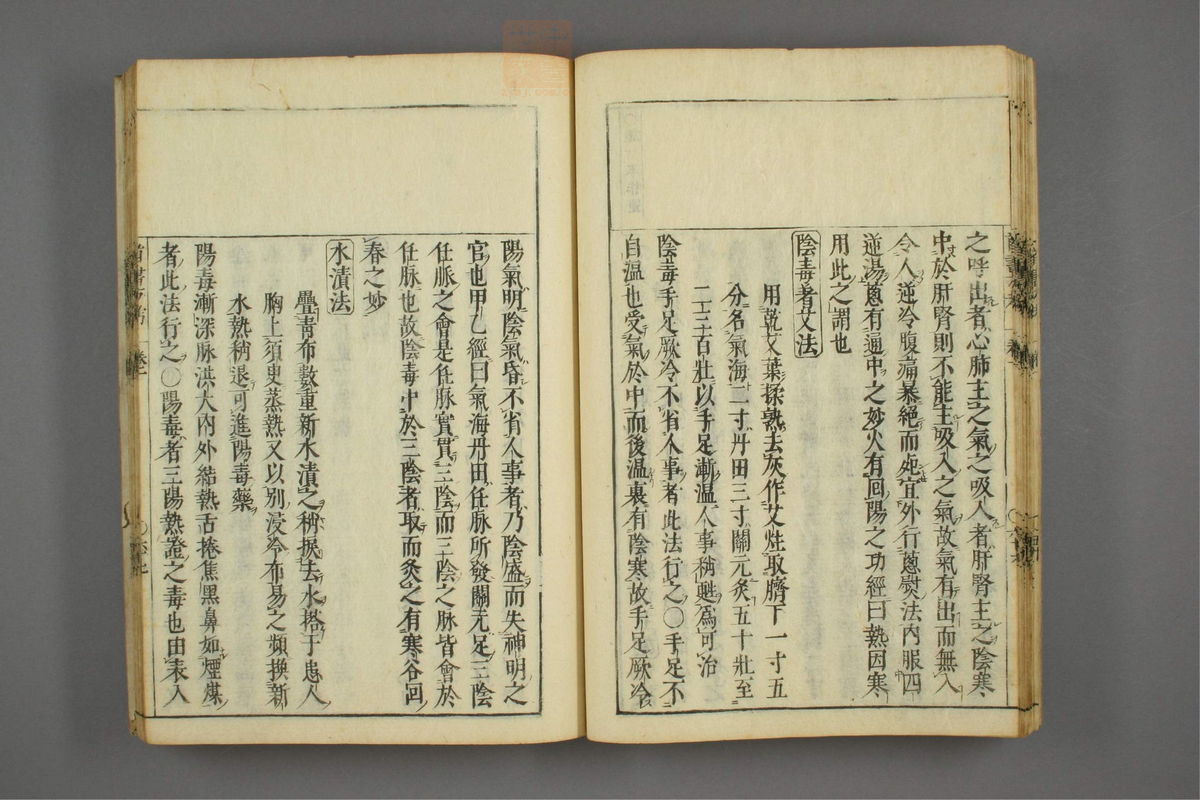 之呼出者心肺主之氣之吸入者肝腎主之陰寒
中於肝腎則不能主吸入之氣故氣有出而無入
令人逆冷腹痛暴絶而死宜外行蔥熨法內服四
逆湯蔥有通中之妙火有回陽之功經曰熱因寒
用此之謂也
陰毒者艾法
用乾艾葉揉熟去灰作艾炷取臍下一寸五
分名氣海二寸丹田三寸關元灸五十壯至
二三百壯以手足漸溫人事稍甦爲可治
陰毒手足厥冷不省人事者此法行之○手足不
自溫也受氣於中而後溫裏有陰寒故手足厥冷
陽氣明陰氣昏不省人事者乃陰盛而失神明之
官也甲乙經曰氣海丹田任脉所發關元足三陰
任脈之會是任脈實貫三陰而三陰之脉皆會於
任脉也故陰毒中於三陰者取而灸之有寒谷回
春之妙
水漬法
疊靑布數重新水漬之稍捩去水搭于患人
胸上須臾蒸熱又以別浸冷布易之頻換新
水熱稍退可進陽毒藥
陽毒漸深脉洪大內外結熱舌捲焦黑鼻如煙煤
者此法行之○陽毒者三陽熱證之毒也由表入